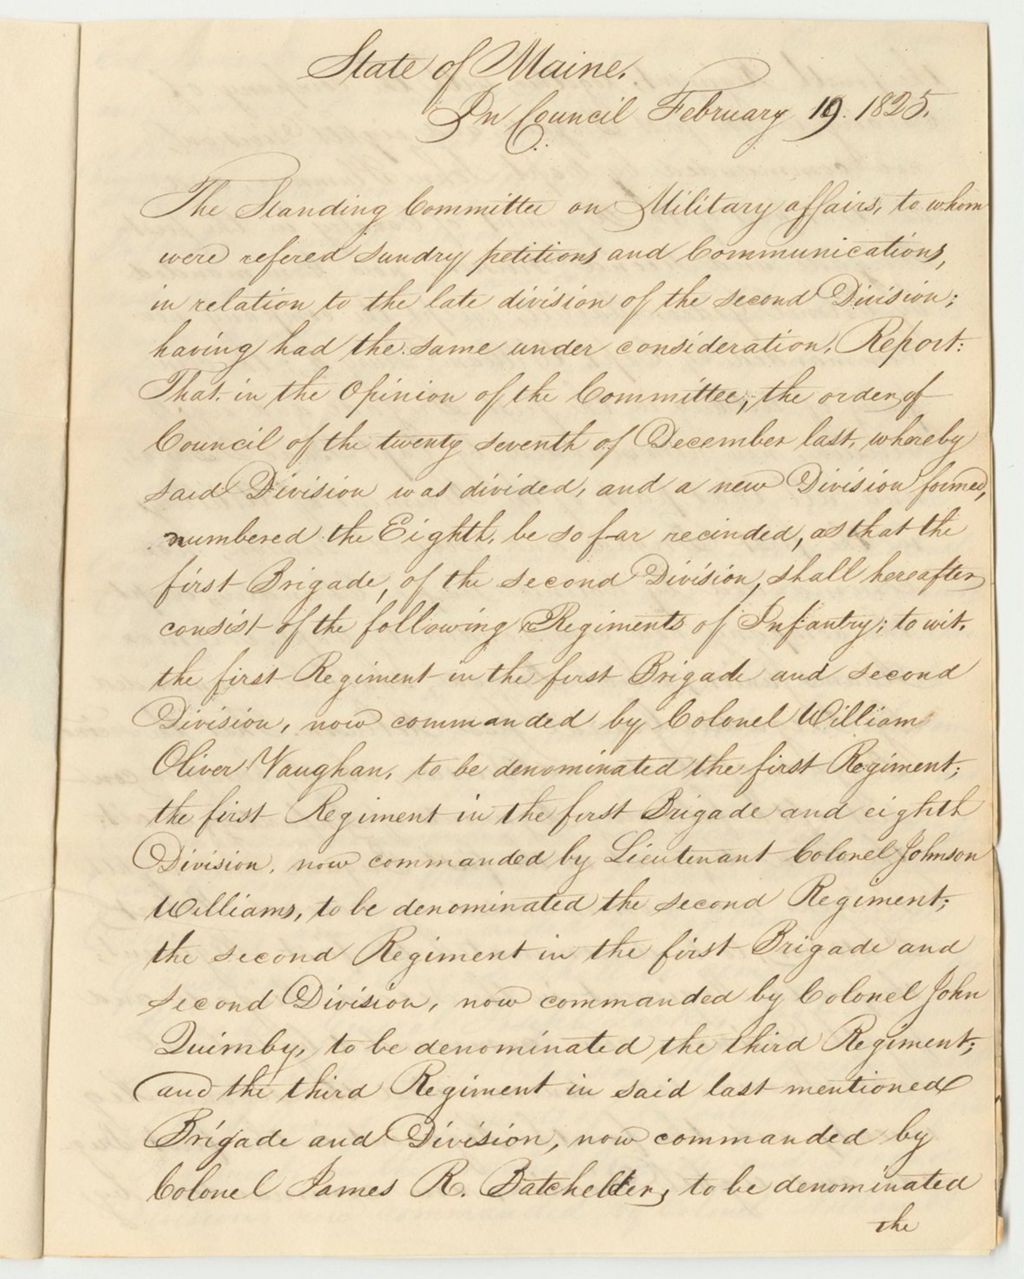 State of Maine.
In Council February 19. 1825.
The Standing Committee on Military affairs, to whom
were refered sundry petitions and Communications,
in relation to the late division of the second Division;
having had the same under consideration, Report:
That in the Opinion of the Committee, the order of
Council of the twenty seventh of December last, whereby
said Division was divided, and a new Division formed,
numbered the Eighth, be so far recinded, as that the
first Brigade, of the second Division, shall hereafter
consist of the following Regiments of Infantry; to wit,
the first Regiment in the first Brigade and second
Division, now commanded by Colonel William
Oliver Vaughan, to be denominated the first Regiment;
the first Regiment in the first Brigade and eighth
Division, now commanded by Lieutenant Colonel Johnson
Williams, to be denominated the second Regiment;
the second Regiment in the first Brigade and
second Division, now commanded by Colonel John
Quimby, to be denominated the third Regiment;
and the third Regiment in said last mentioned
Brigade and Division, now commanded by
Colonel James R. Batchelder, to be denominated
the